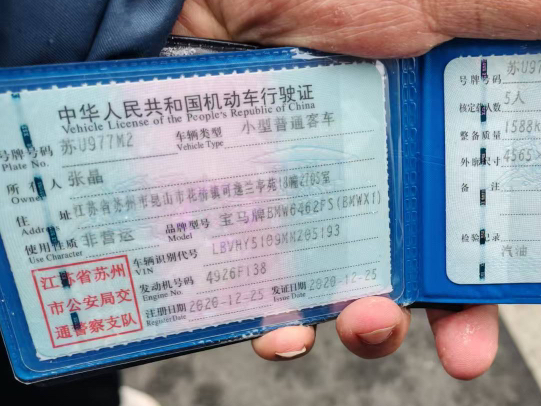 中华人民共和国机动车行驶证
Vehicle License of the People's Republic of China
号牌号码 苏U977M2 车辆类型 小型普通客车
Plate No. Vehicle Type
所有人 张晶
Owner
住址 江苏省苏州市昆山市花桥镇可逸兰亭苑18幢2705室
Address
使用性质 非营运 品牌型号 宝马牌BMW6462FS(BMWX1)
Use Character Model
车辆识别代号 LBVHY5109MM205193
VIN
发动机号码 4926F138
Engine No.
注册日期 2020-12-25 发证日期 2020-12-25
Register Date Issue Date
江苏省苏州
市公安局交
通警察支队
号牌号码 苏U97
核定人数 5人
整备质量 1588k
外廓尺寸 4565
备注
检验记录
汽油